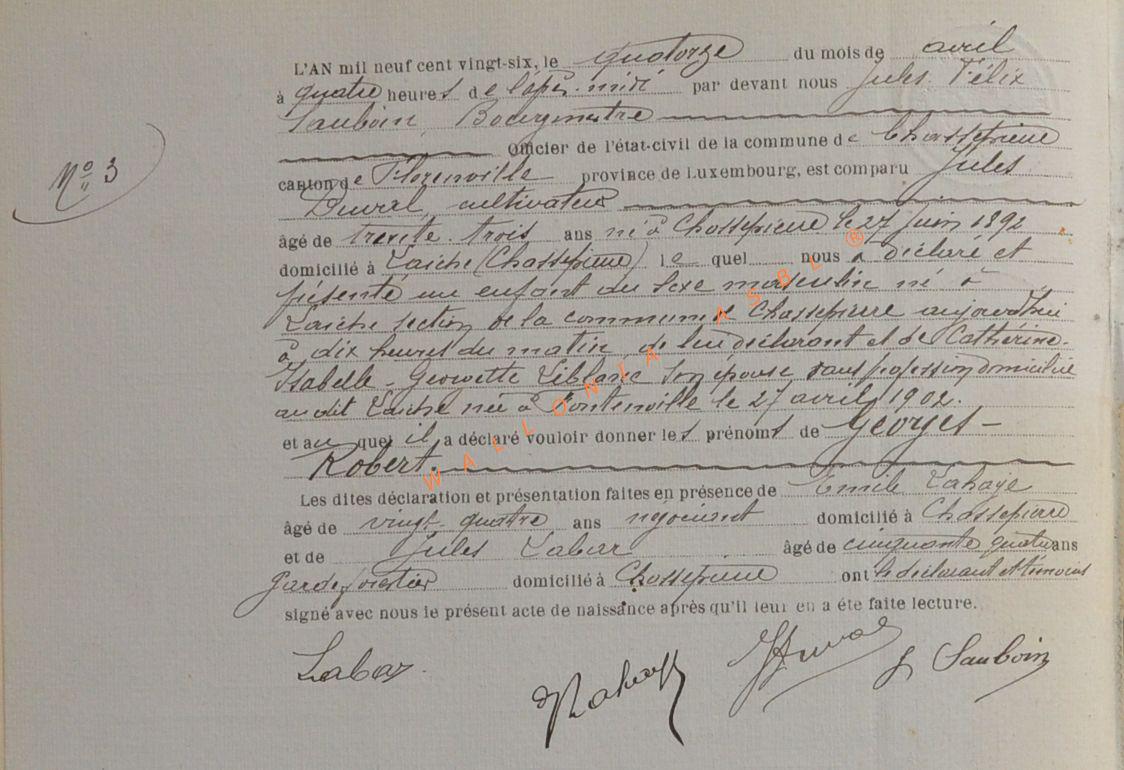 L'AN mil neuf cent vingt-six, le quatorze du mois de avril
à quatre heures de l'après-midi par devant nous Jules Félix
Sauboin, Bourgmestre
Officier de l'état-civil de la commune de Chassepierre
N° 3
canton de Florenville province de Luxembourg, est comparu Jules
Duval, cultivateur
âgé de trente-trois ans né à Chassepierre le 27 juin 1892
domicilié à Laiche (Chassepierre) le quel nous a déclaré et
présenté un enfant du sexe masculin né à
Laiche section de la commune de Chassepierre aujourd'hui
à dix heures du matin, de lui déclarant et de Catherine-
Isabelle-Georgette Leblanc son épouse sans profession domiciliée
au dit Laiche née à Fontenoille le 27 avril 1902.
et au quel il a déclaré vouloir donner les prénoms de Georges-
Robert.
Les dites déclaration et présentation faites en présence de Emile Lahaye
âgé de vingt-quatre ans négociant domicilié à Chassepierre
et de Jules Labar âgé de cinquante quatre ans
garde forestier domicilié à Chassepierre ont le déclarant et témoins
signé avec nous le présent acte de naissance après qu'il leur en a été faite lecture.
Labar. Lahaye JDuval J Sauboin
WALLONIA ASBL ®